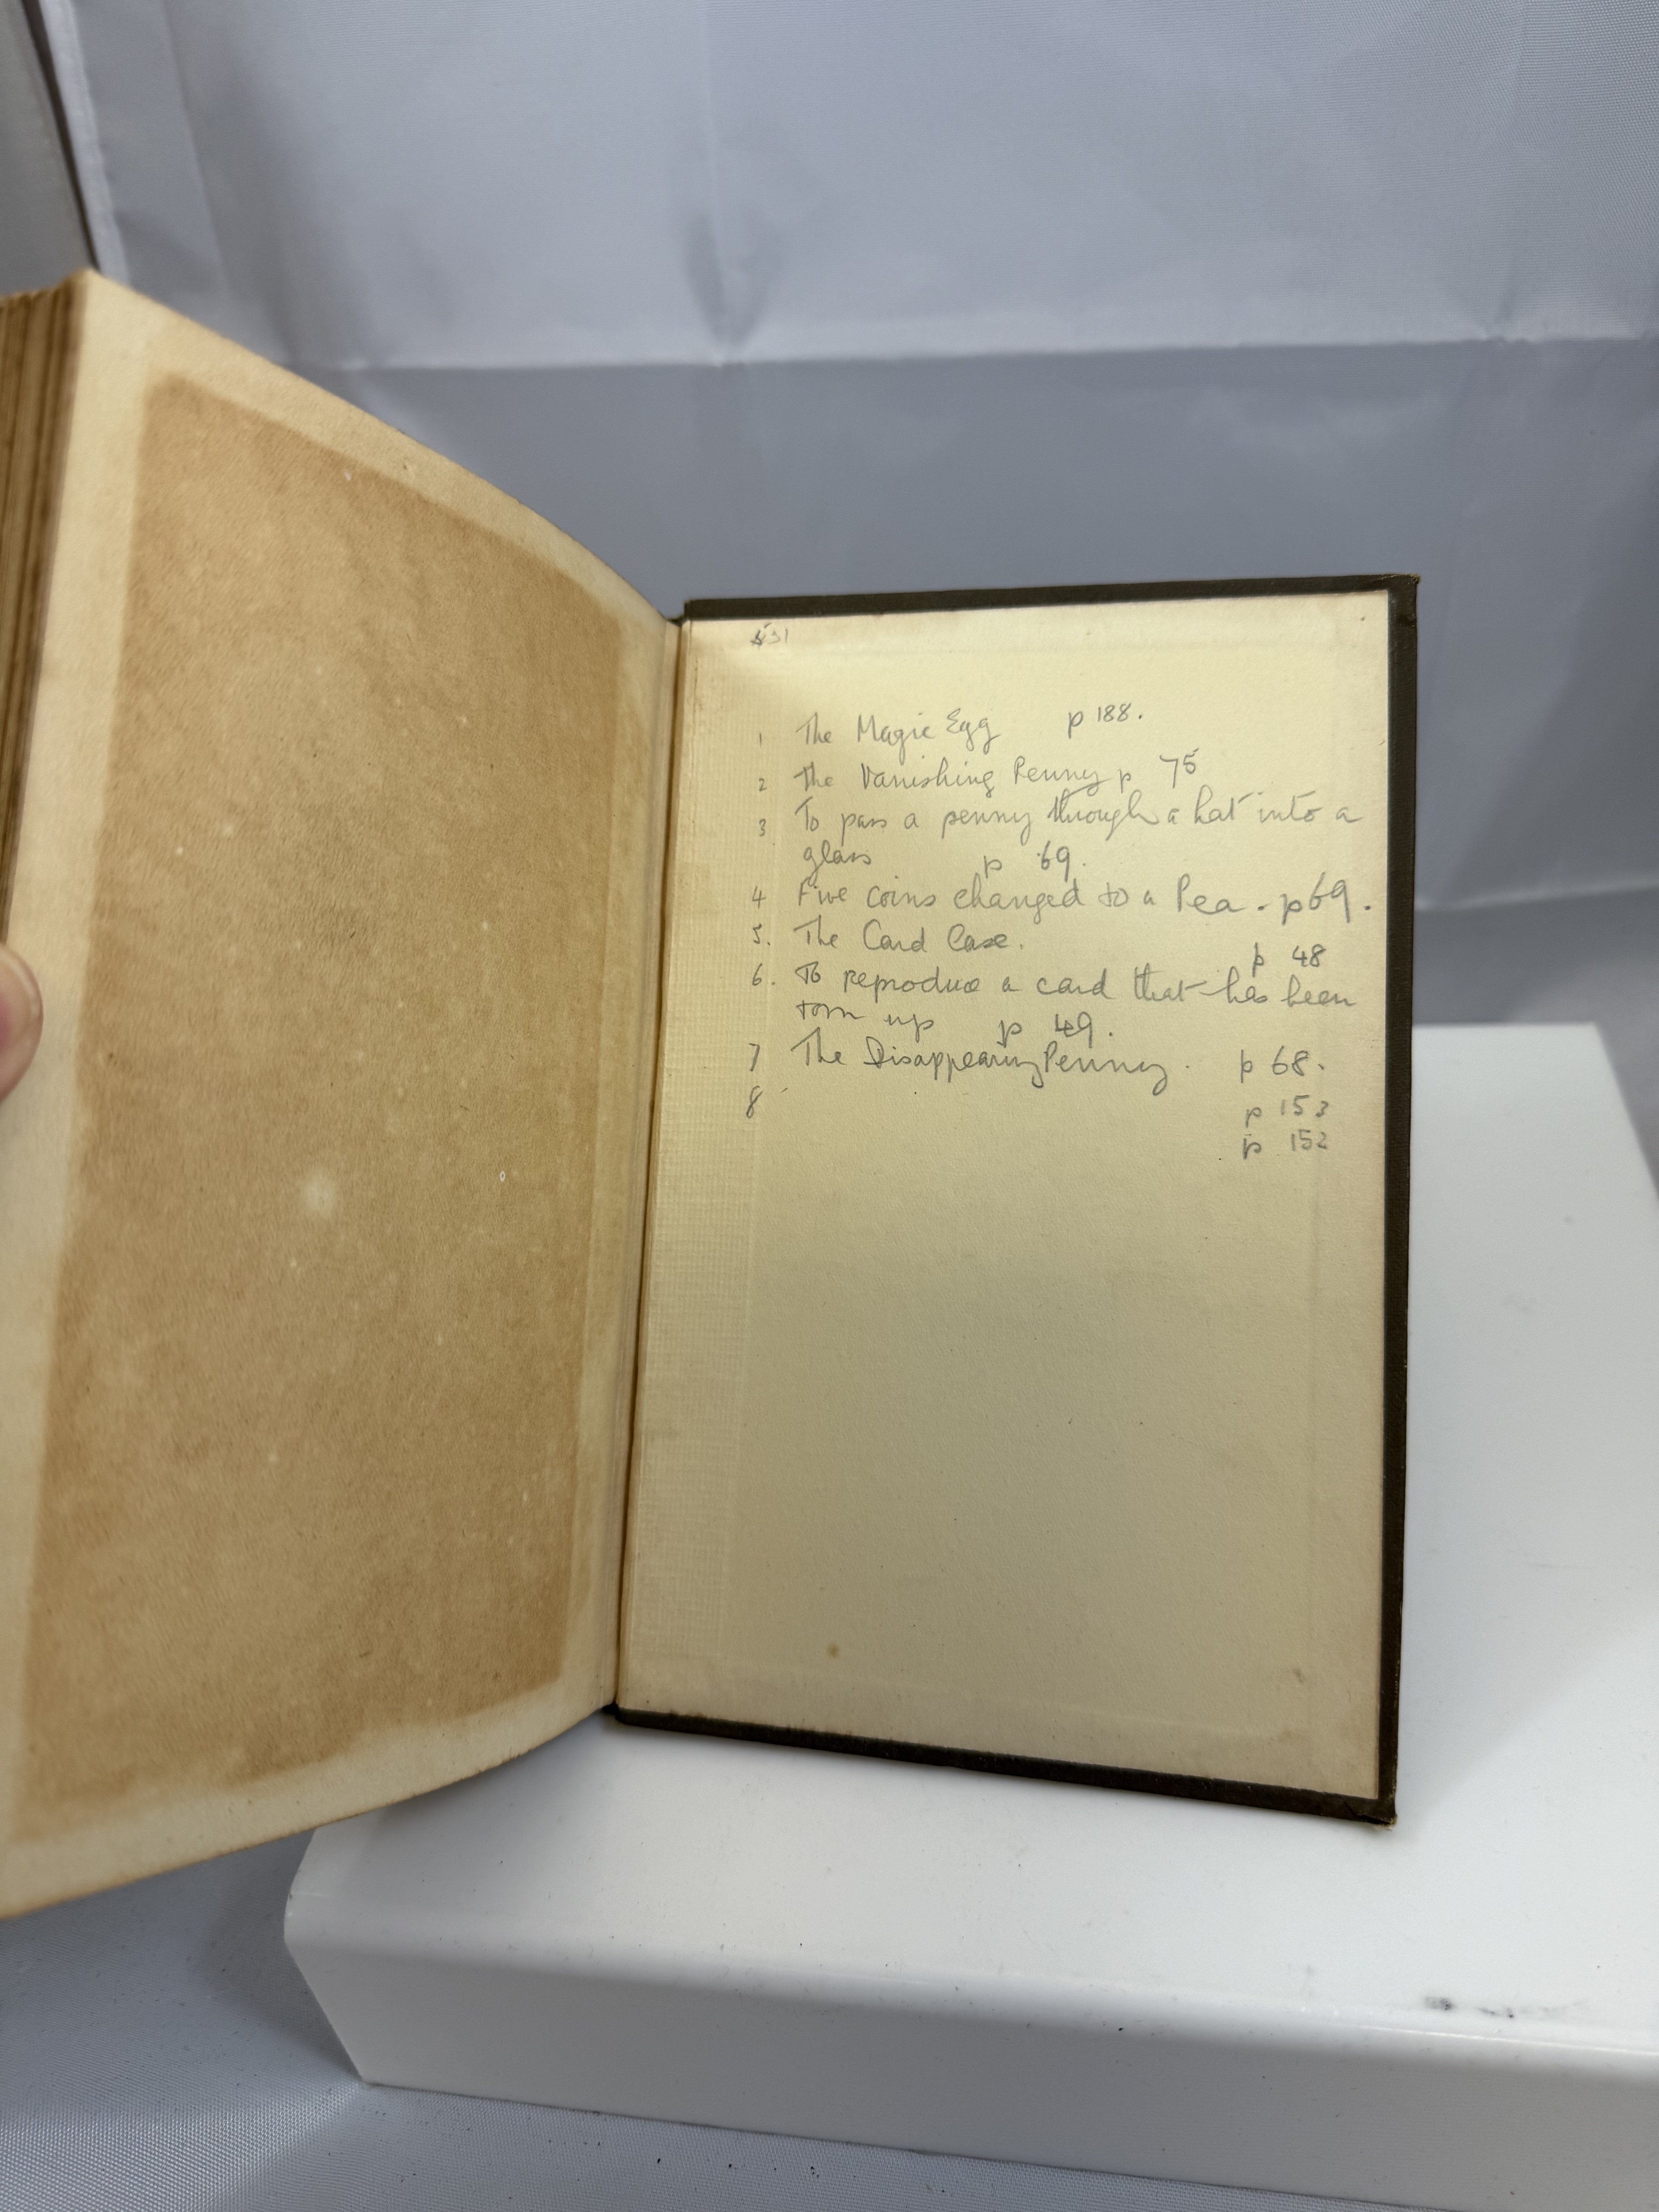 1 The Magic Egg p 188.
2 The Vanishing Penny p 75
3 To pass a penny through a hat into a
glass p 69.
4 Five coins changed to a Pea. p69.
5. The Card Case. p 48
6. To reproduce a card that has been
torn up p 49.
7 The Disappearing Penny. p 68.
8 p 153
p 152